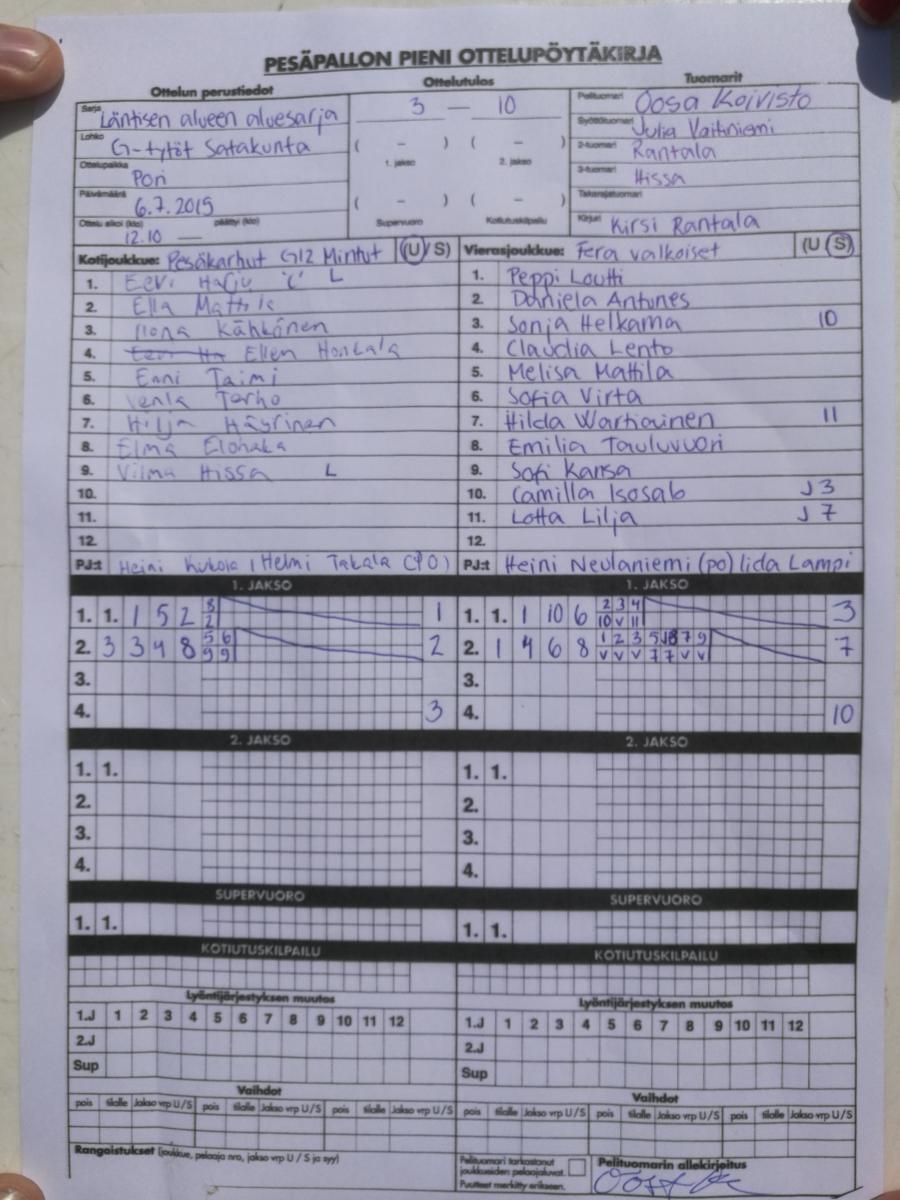 PESÄPALLON PIENI OTTELUPÖYTÄKIRJA
Ottelun perustiedot Ottelutulos Tuomarit
Sarja Läntisen alueen aluesarja 3 — 10 Pelituomari Oosa Koivisto
Lohko G-tytöt Satakunta ( – ) ( – ) Syöttötuomari Julia Vaihniemi
1. jakso 2. jakso 2-tuomari Rantala
Ottelupaikka Pori 3-tuomari Hissa
Päivämäärä 6.7.2015 ( – ) ( – ) Takarajatuomari
Ottelu alkoi (klo) 12.10 — päättyi (klo) Supervuoro Kotiutuskilpailu Kirjuri Kirsi Rantala
Kotijoukkue: Pesäkarhut G12 Mintut (U/S) Vierasjoukkue: Fera valkoiset (U S)
1. Eevi Harju 'C' L 1. Peppi Loutti
2. Ella Mattila 2. Daniela Antunes
3. Ilona Kähkönen 3. Sonja Helkama 10
4. Ellen Honkala 4. Claudia Lento
5. Enni Taimi 5. Melisa Mattila
6. Venla Tarho 6. Sofia Virta
7. Hilja Häyrinen 7. Hilda Wartiainen 11
8. Elma Elohaka 8. Emilia Tauluvuori
9. Vilma Hissa L 9. Sofi Kansa
10. 10. Camilla Isosalo J 3
11. 11. Lotta Lilja J 7
12. 12.
PJ:t Heini Kukola, Helmi Takala (PO) PJ:t Heini Neulaniemi (po) Iida Lampi
1. JAKSO 1. JAKSO
1. 1. 1 5 2 3 1 1. 1. 1 10 6 2 3 4 3
2 10 V 11
2. 3 3 4 8 5 6 2 2. 1 4 6 8 1 2 3 5 J8 7 9 7
9 9 V V V 7 7 V V
3. 3.
4. 3 4. 10
2. JAKSO 2. JAKSO
1. 1. 1. 1.
2. 2.
3. 3.
4. 4.
SUPERVUORO SUPERVUORO
1. 1. 1. 1.
KOTIUTUSKILPAILU KOTIUTUSKILPAILU
Lyöntijärjestyksen muutos Lyöntijärjestyksen muutos
1.J 1 2 3 4 5 6 7 8 9 10 11 12 1.J 1 2 3 4 5 6 7 8 9 10 11 12
2.J 2.J
Sup Sup
Vaihdot Vaihdot
pois tilalle Jakso vrp U/S pois tilalle Jakso vrp U/S pois tilalle Jakso vrp U/S pois tilalle Jakso vrp U/S pois tilalle Jakso vrp U/S pois tilalle Jakso vrp U/S
Rangaistukset (joukkue, pelaaja nro, jakso vrp U / S ja syy) Pelituomari tarkastanut Pelituomarin allekirjoitus
joukkueiden pelaajaluvat.
Puutteet merkitty erikseen.